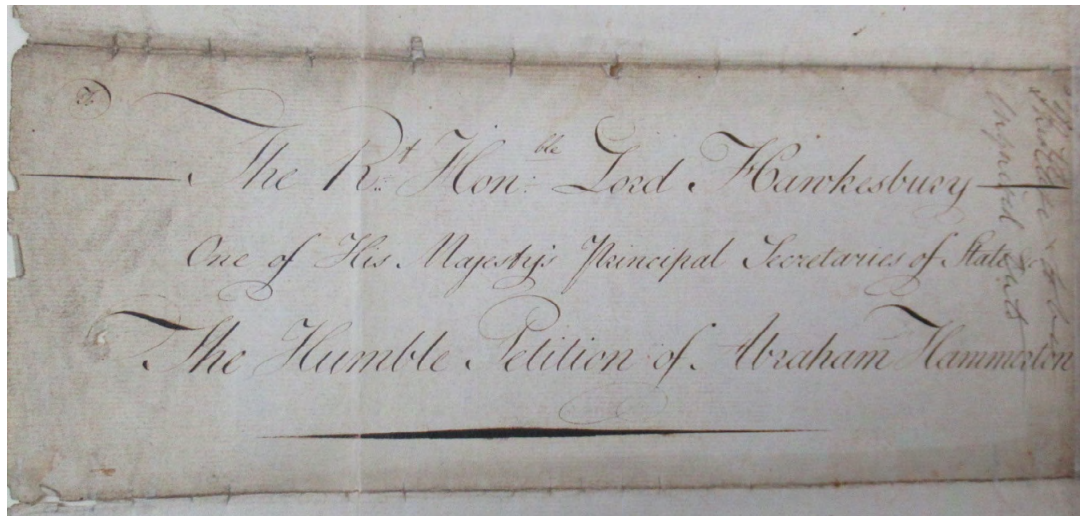 The Rt. Hon:ble Lord Hawkesbury
One of His Majesty's Principal Secretaries of State
The Humble Petition of Abraham Hammerton